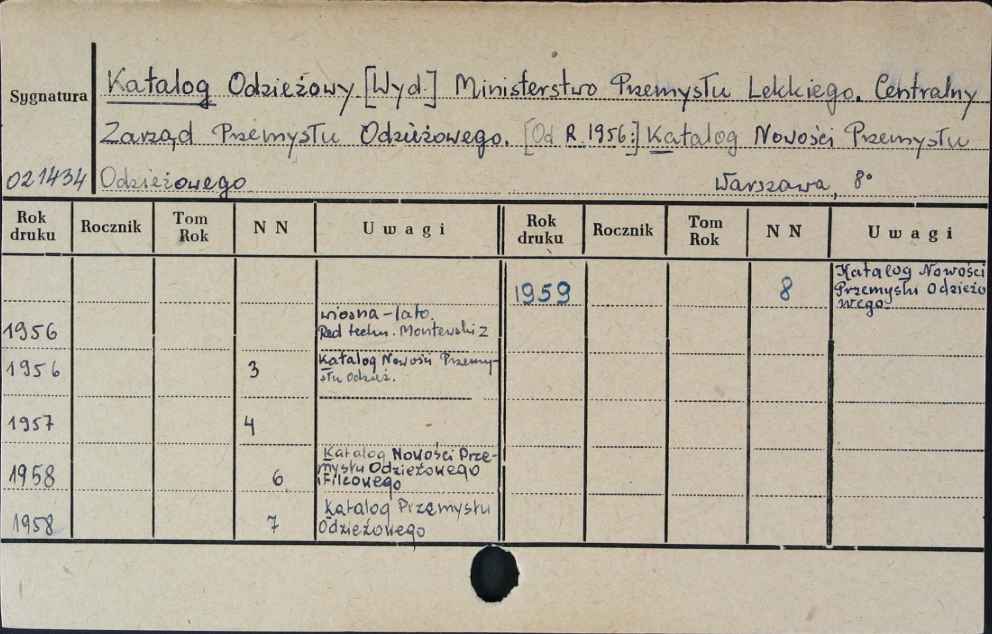 Katalog Odzieżowy [Wyd.] Ministerstwo Przemysłu Lekkiego. Centralny
Sygnatura
Zarząd Przemysłu Odzieżowego. [Od R. 1956:] Katalog Nowości Przemysłu
021434 Odzieżowego Warszawa, 8°
Rok druku Rocznik Tom Rok N N Uwagi Rok druku Rocznik Tom Rok N N Uwagi
1959 8 Katalog Nowości
Przemysłu Odzieżo
wego
wiosna - lato.
1956 Red techn. Montewski Z
1956 3 Katalog Nowości Przemy-
słu Odzież.
1957 4
Katalog Nowości Prze-
1958 6 mysłu Odzieżowego
i Filcowego
1958 7 Katalog Przemysłu
Odzieżowego